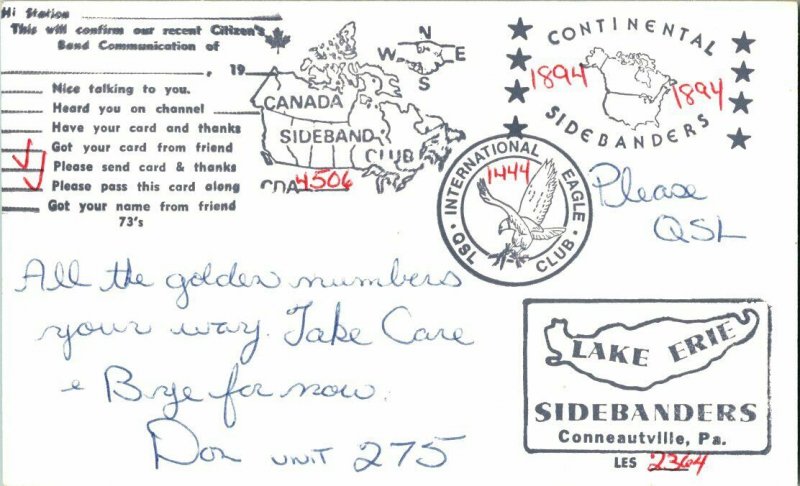 Hi Station
This will confirm our recent Citizen's
Band Communication of
, 19
Nice talking to you.
Heard you on channel
Have your card and thanks
Got your card from friend
Please send card & thanks
Please pass this card along
Got your name from friend
73's
N
W E
S
CANADA
SIDEBAND
CLUB
CDA 4506
CONTINENTAL
1894 1894
SIDEBANDERS
INTERNATIONAL EAGLE
1444
QSL CLUB
Please
QSL
All the golden numbers
your way. Take Care
& Bye for now.
Don UNIT 275
LAKE ERIE
SIDEBANDERS
Conneautville, Pa.
LES 2364